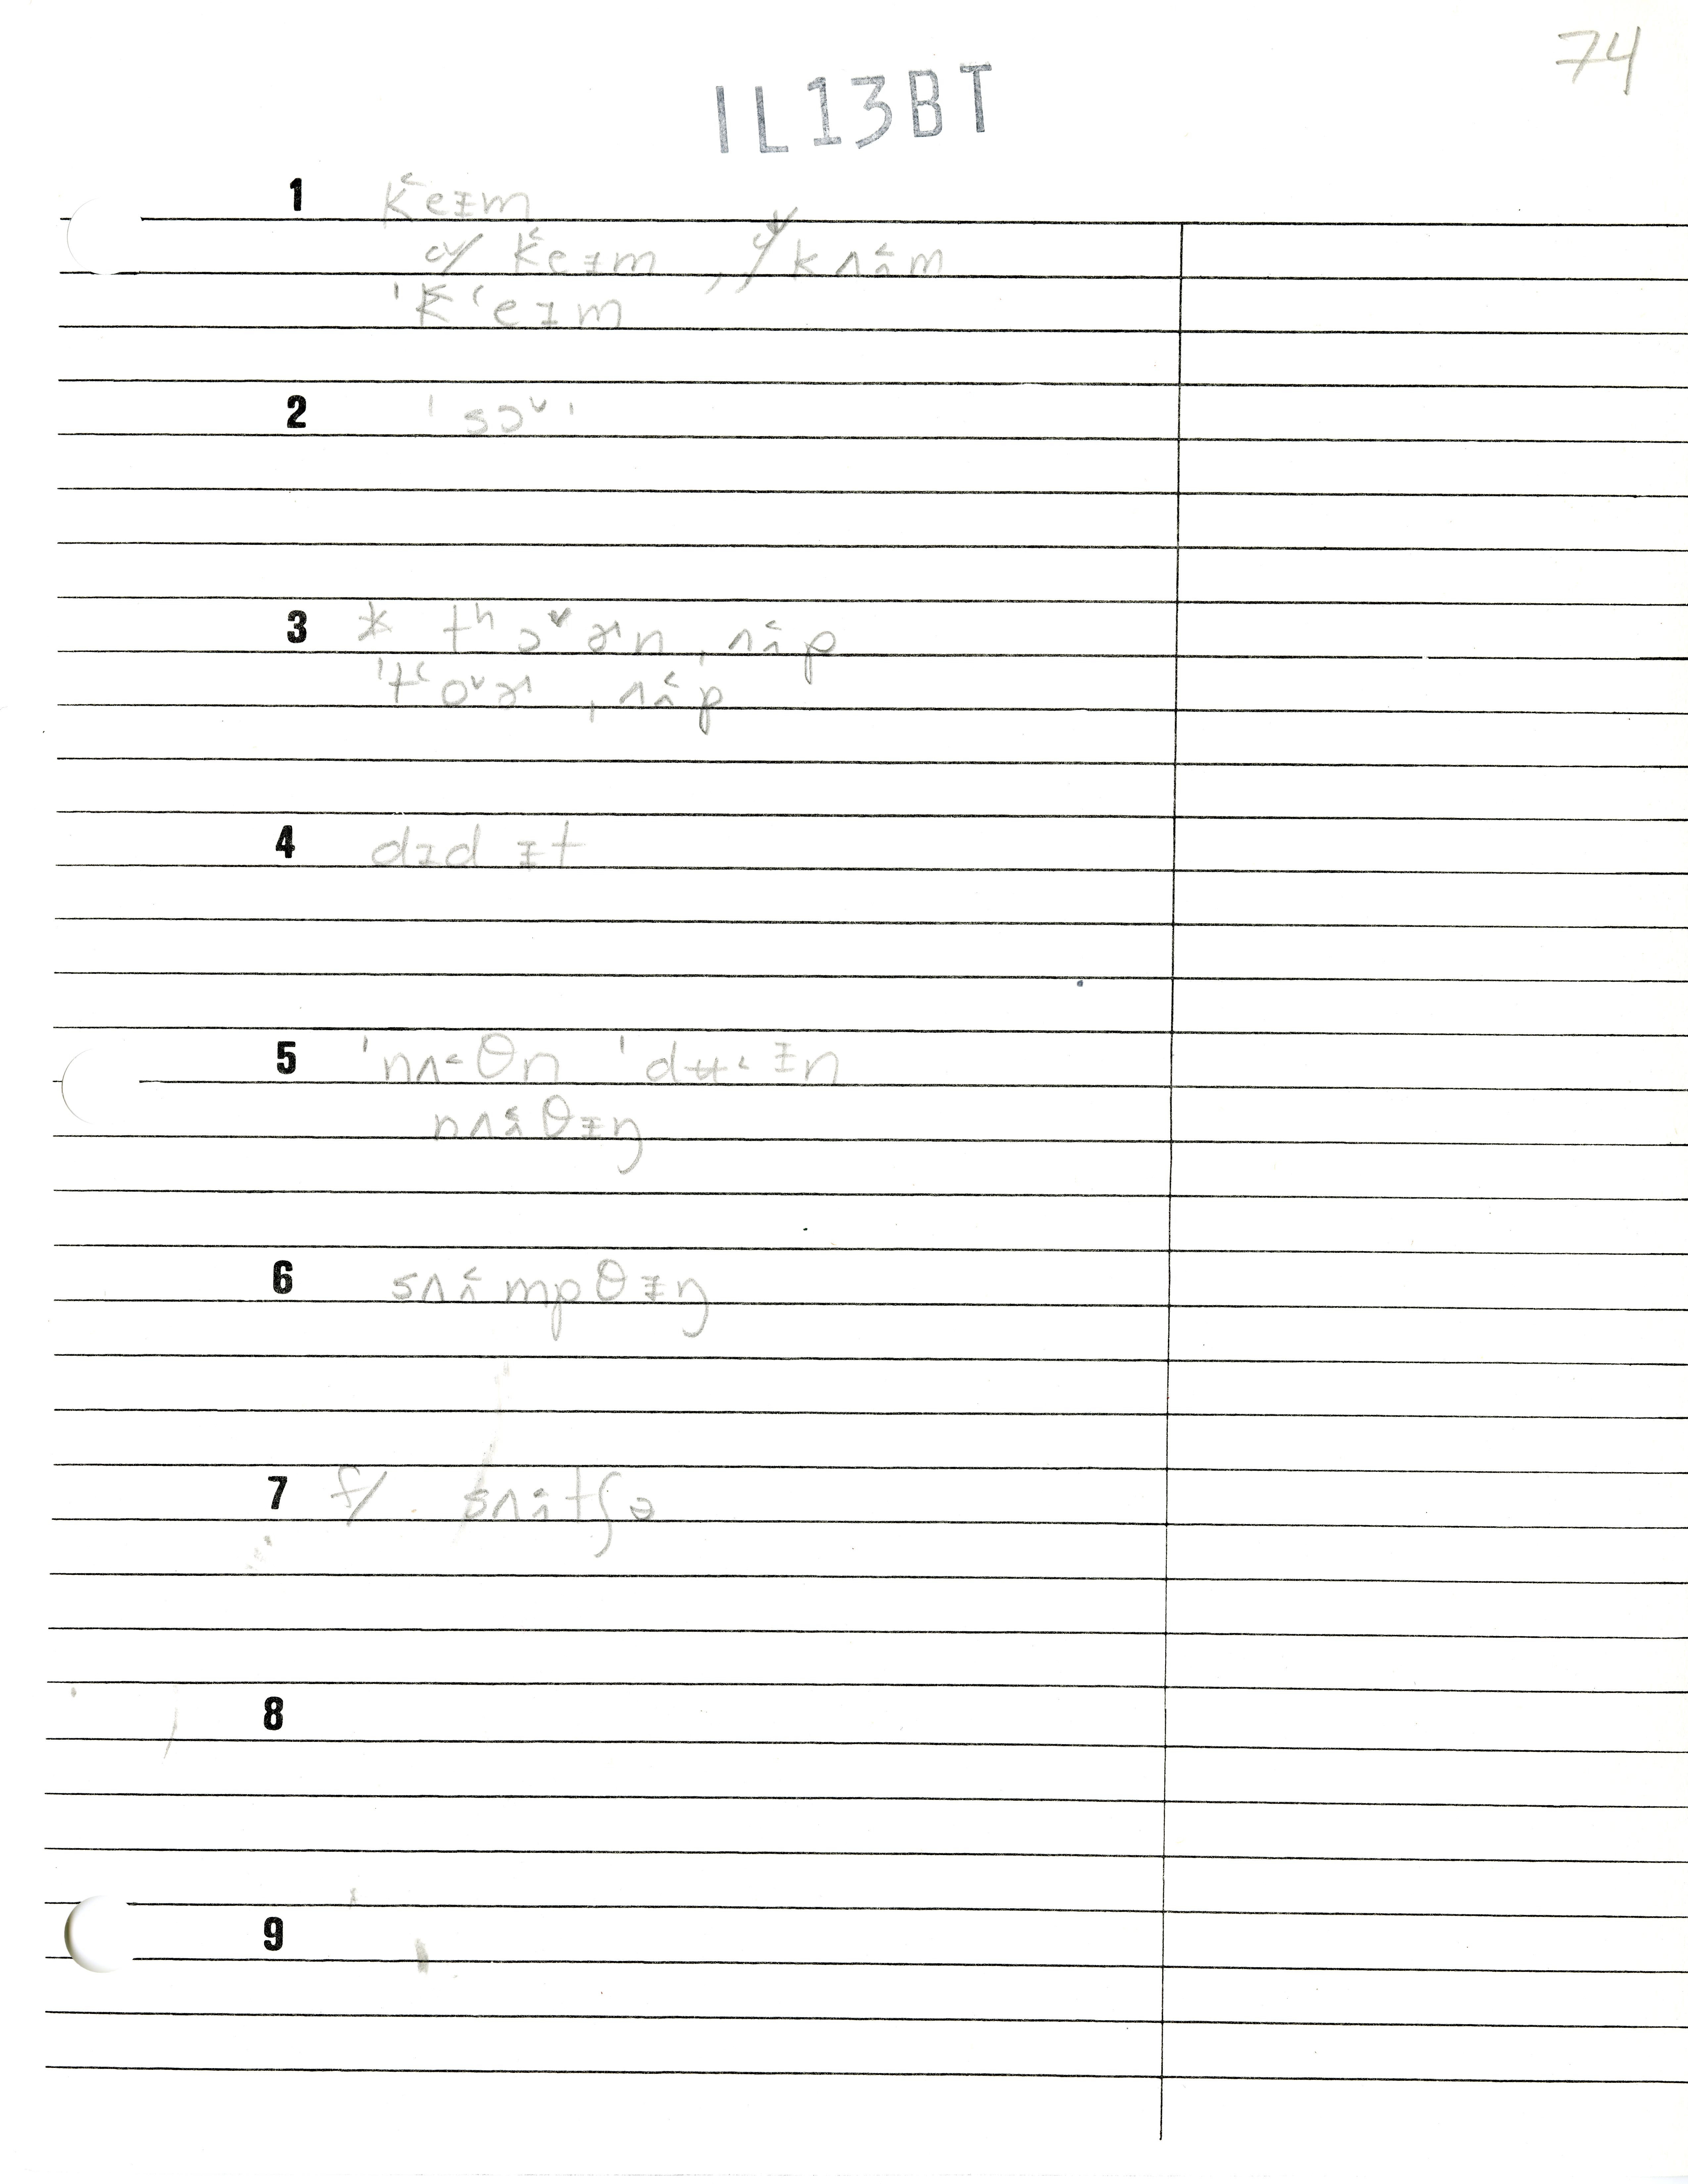 74
IL13BT
1 k˂eɪm
c/ k˂eɪm , c/ kʌ˂m
'k‘eɪm
2 ' sɔ˅ '
3 * tʰ ɔ˅ ɚn , ʌ˂p
't‘o˅ɚ , ʌ˂p
4 dɪd ɪt
5 'nʌ˂θn 'dʉ˂ ɪn
nʌ˂θɪŋ
6 sʌ˂mpθɪŋ
7 f/ sʌ˄tʃə
8
9